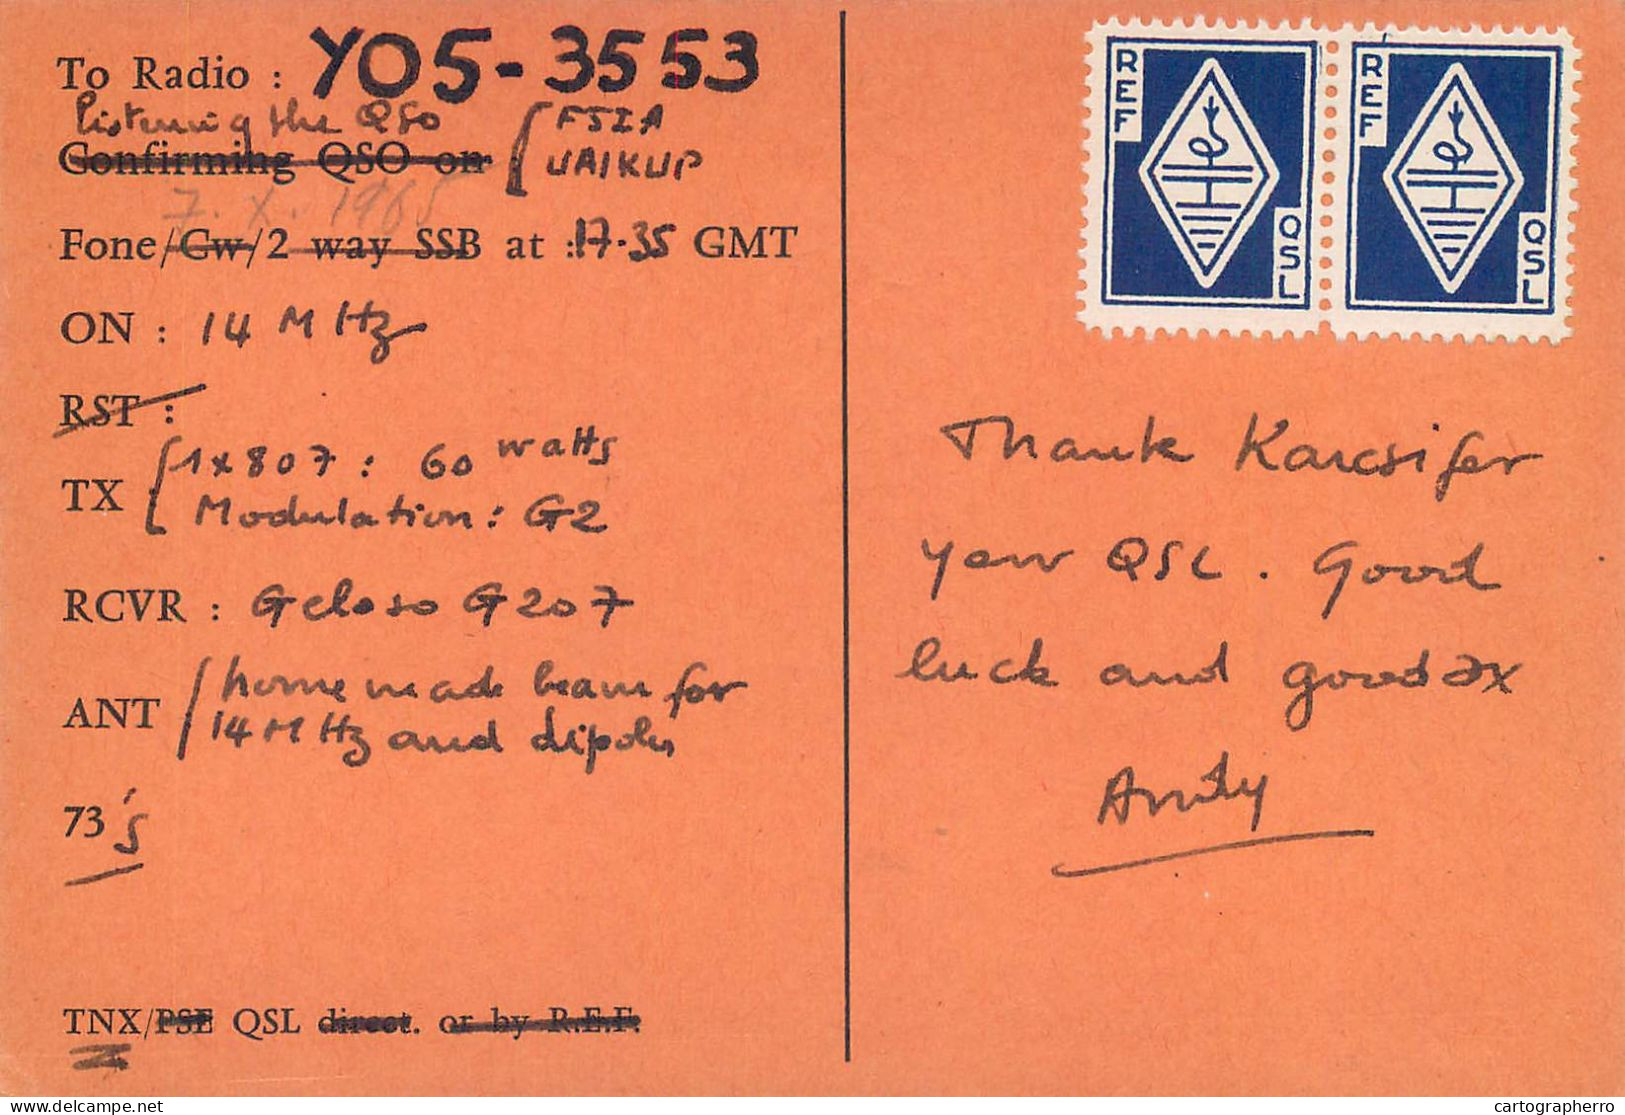 To Radio : YO5-3553
Listening the QSO
Confirming QSO on
UAIKUP
7. X. 1965
Fone/Cw/2 way SSB at :17-35 GMT
ON : 14 MHz
RST :
TX 1x807 : 60 watts
Modulation : G2
RCVR : Geloso G207
ANT home made beam for
14 MHz and dipoles
73's
TNX/PSE QSL direct. or by R.E.F.
REF
QSL
REF
QSL
Thank Karcsi for
your QSL. Good
luck and good DX
Andy
cartographerro